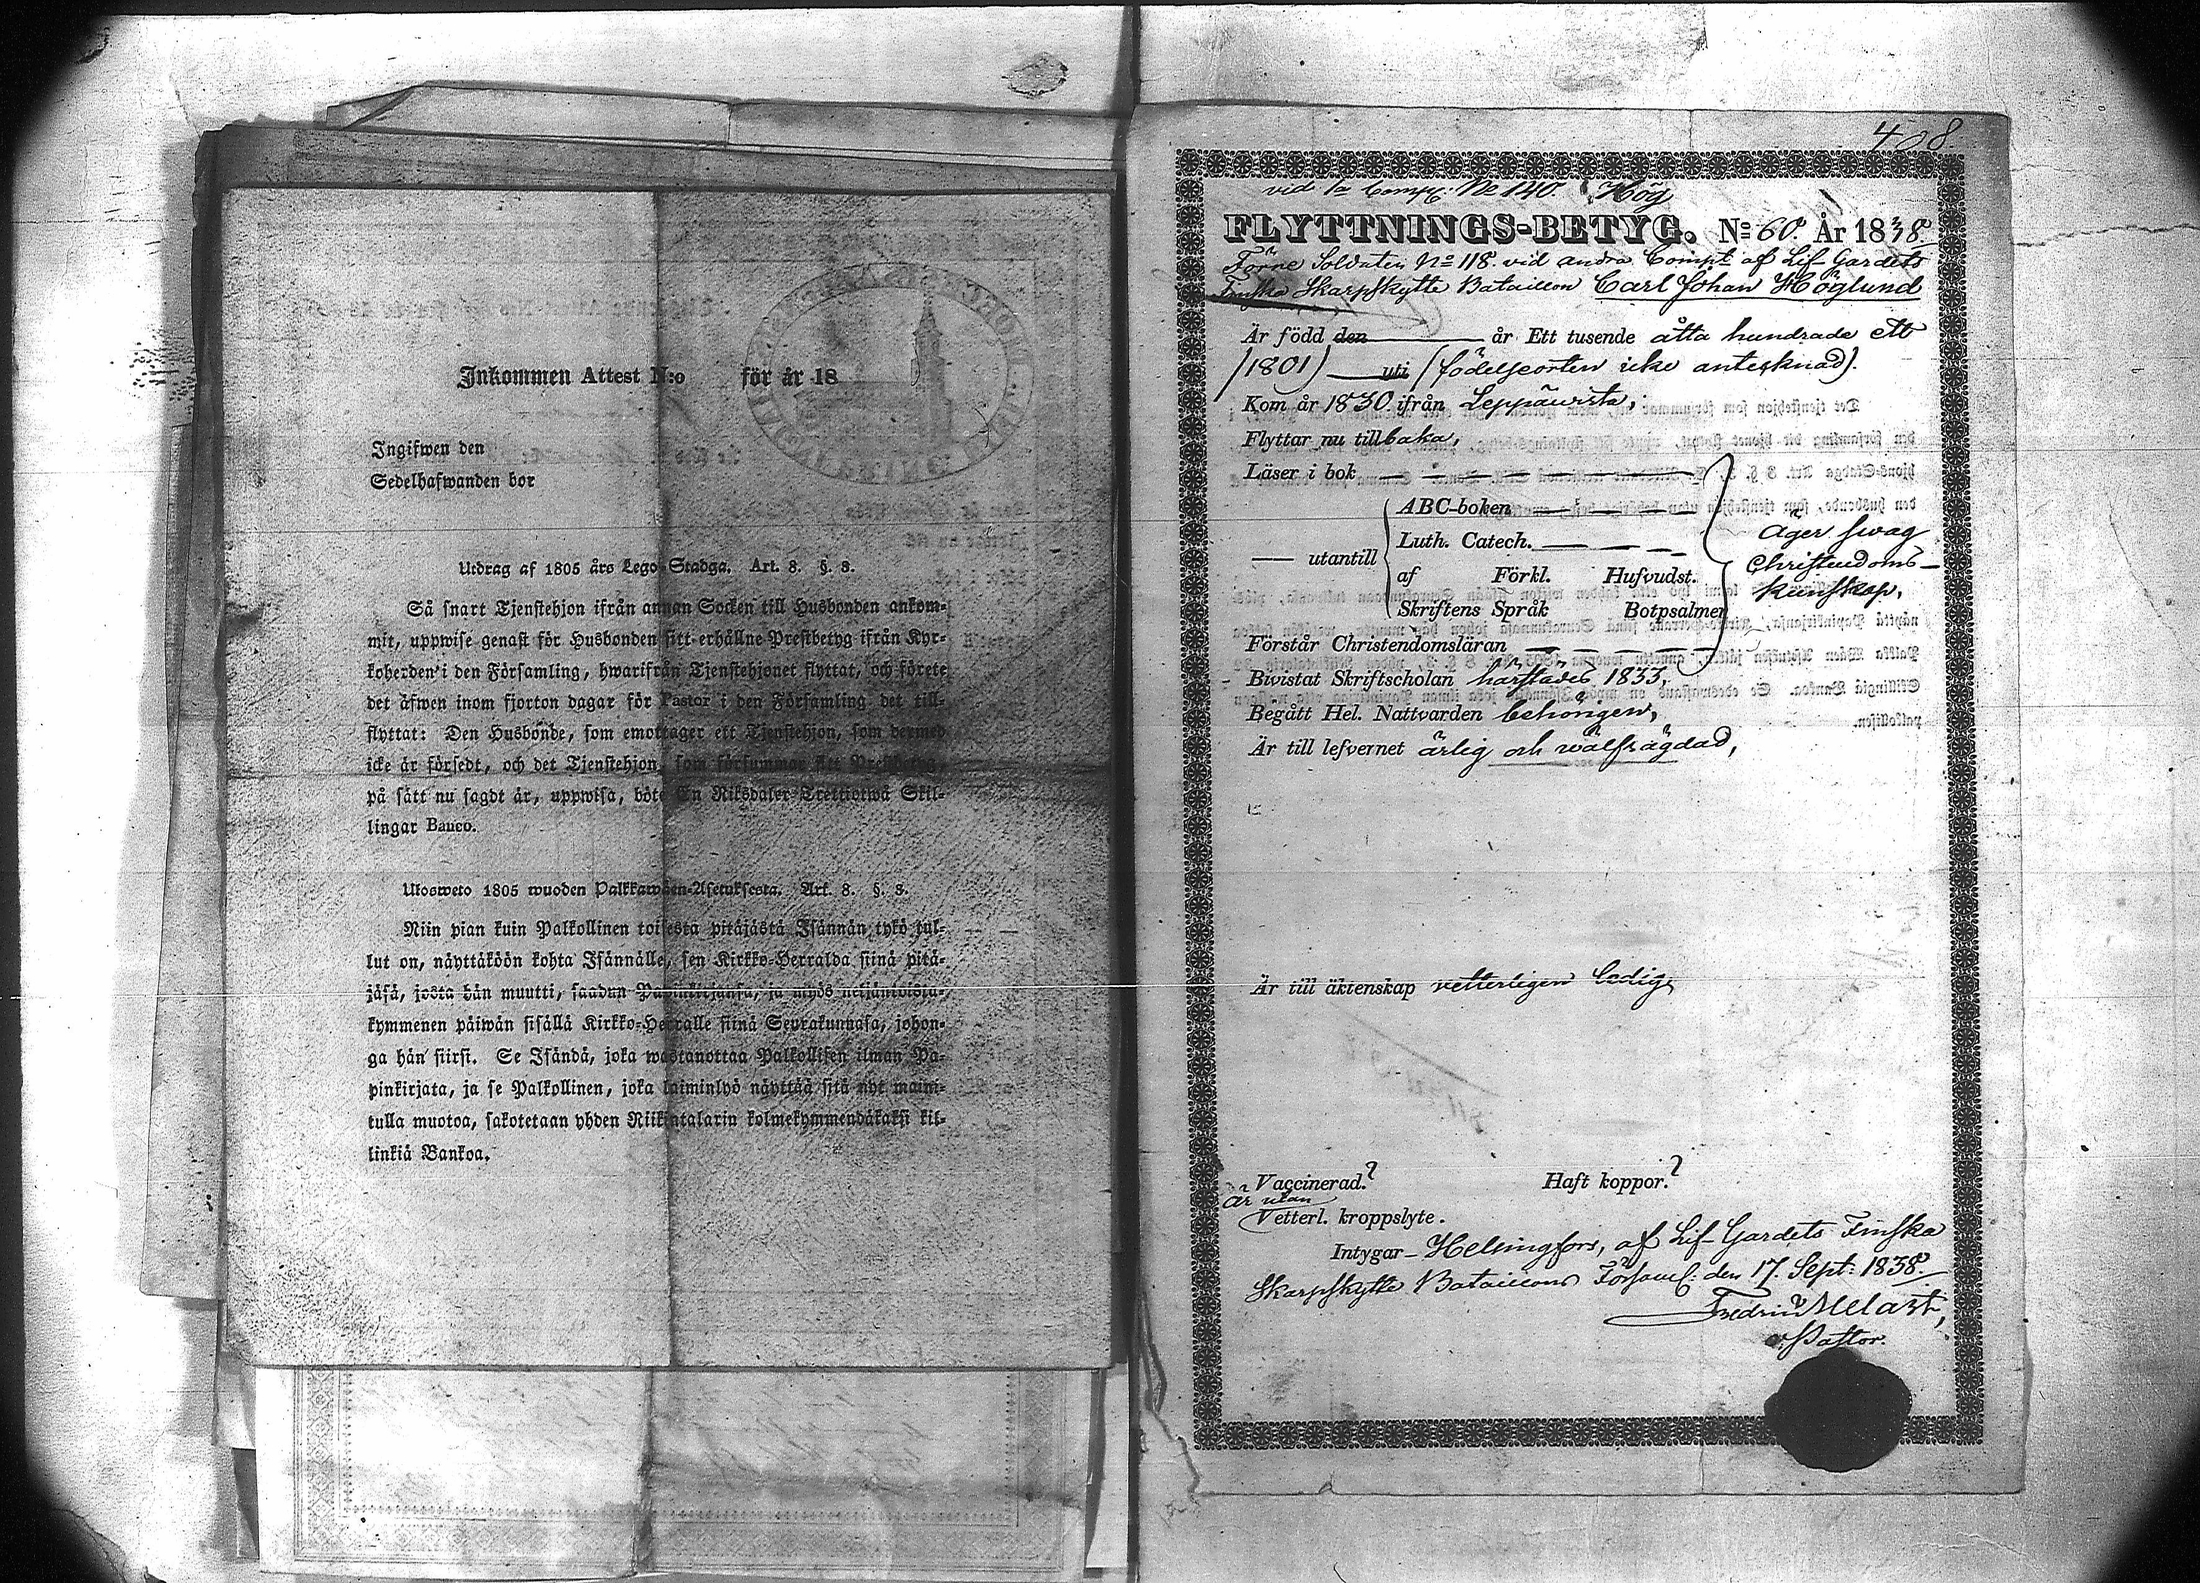 Inkommen Attest N:o för år 18
Ingifwen den
Sedelhafwanden bor
Utdrag af 1805 års Lego-Stadga. Art. 8. §. 3.
Så snart Tjenstehjon ifrån annan Socken till Husbonden ankom-
mit, uppwise genast för Husbonden sitt erhållne Prestbetyg ifrån Kyr-
koherden i den Församling, hwarifrån Tjenstehjonet flyttat, och förete
det äfwen inom fjorton dagar för Pastor i den Församling det till-
flyttat: Den Husbonde, som emottager ett Tjenstehjon, som dermed
icke är försedt, och det Tjenstehjon, som försummar sitt Prestbetyg,
på sätt nu sagdt är, uppwisa, böte En Riksdaler Trettiotwå Skil-
lingar Banco.
Ulosweto 1805 wuoden Palkkawäen-Asetuksesta. Art. 8. §. 3.
Niin pian kuin Palkollinen toisesta pitäjästä Isännän tykö tul-
lut on, näyttäköön kohta Isännälle, sen Kirkko-Herralda siinä pitä-
jäsä, josta hän muutti, saadun Papinkirjansa, ja myös neljäntoista-
kymmenen päiwän sisällä Kirkko-Herralle siinä Seurakunnasa, johon-
ga hän siirsi. Se Isändä, joka wastanottaa Palkollisen ilman Pa-
pinkirjata, ja se Palkollinen, joka laiminlyö näyttää sitä nyt maini-
tulla muotoa, sakotetaan yhden Riikintalarin kolmekymmendäkaksi kil-
linkiä Bankoa.
408.
vid 1a Comp: No 140. Hög
FLYTTNINGS-BETYG. No 60. År 1838
Förne Soldaten No 118. vid andra Compt af Lif-Gardets
Finska Skarpskytte Bataillon Carl Johan Höglund
Är född den år Ett tusende åtta hundrade ett
/1801/ uti (födelseorten icke antecknad).
Kom år 1830 ifrån Leppävirta,
Flyttar nu tillbaka,
Läser i bok
ABC-boken
Luth. Catech.
— utantill
af Förkl. Hufvudst.
Skriftens Språk Botpsalmer
Äger swag
Christendoms-
kunskap,
Förstår Christendomsläran
Bivistat Skriftscholan härstädes 1833,
Begått Hel. Nattvarden behörigen,
Är till lefvernet ärlig och wälfrägdad,
Är till äktenskap vetterligen ledig,
Vaccinerad? Haft koppor?
Är utan
Vetterl. kroppslyte.
Intygar - Helsingfors, af Lif-Gardets Finska
Skarpskytte Bataillons Församl: den 17. Sept: 1838
Fredric Melart,
v. Pastor.